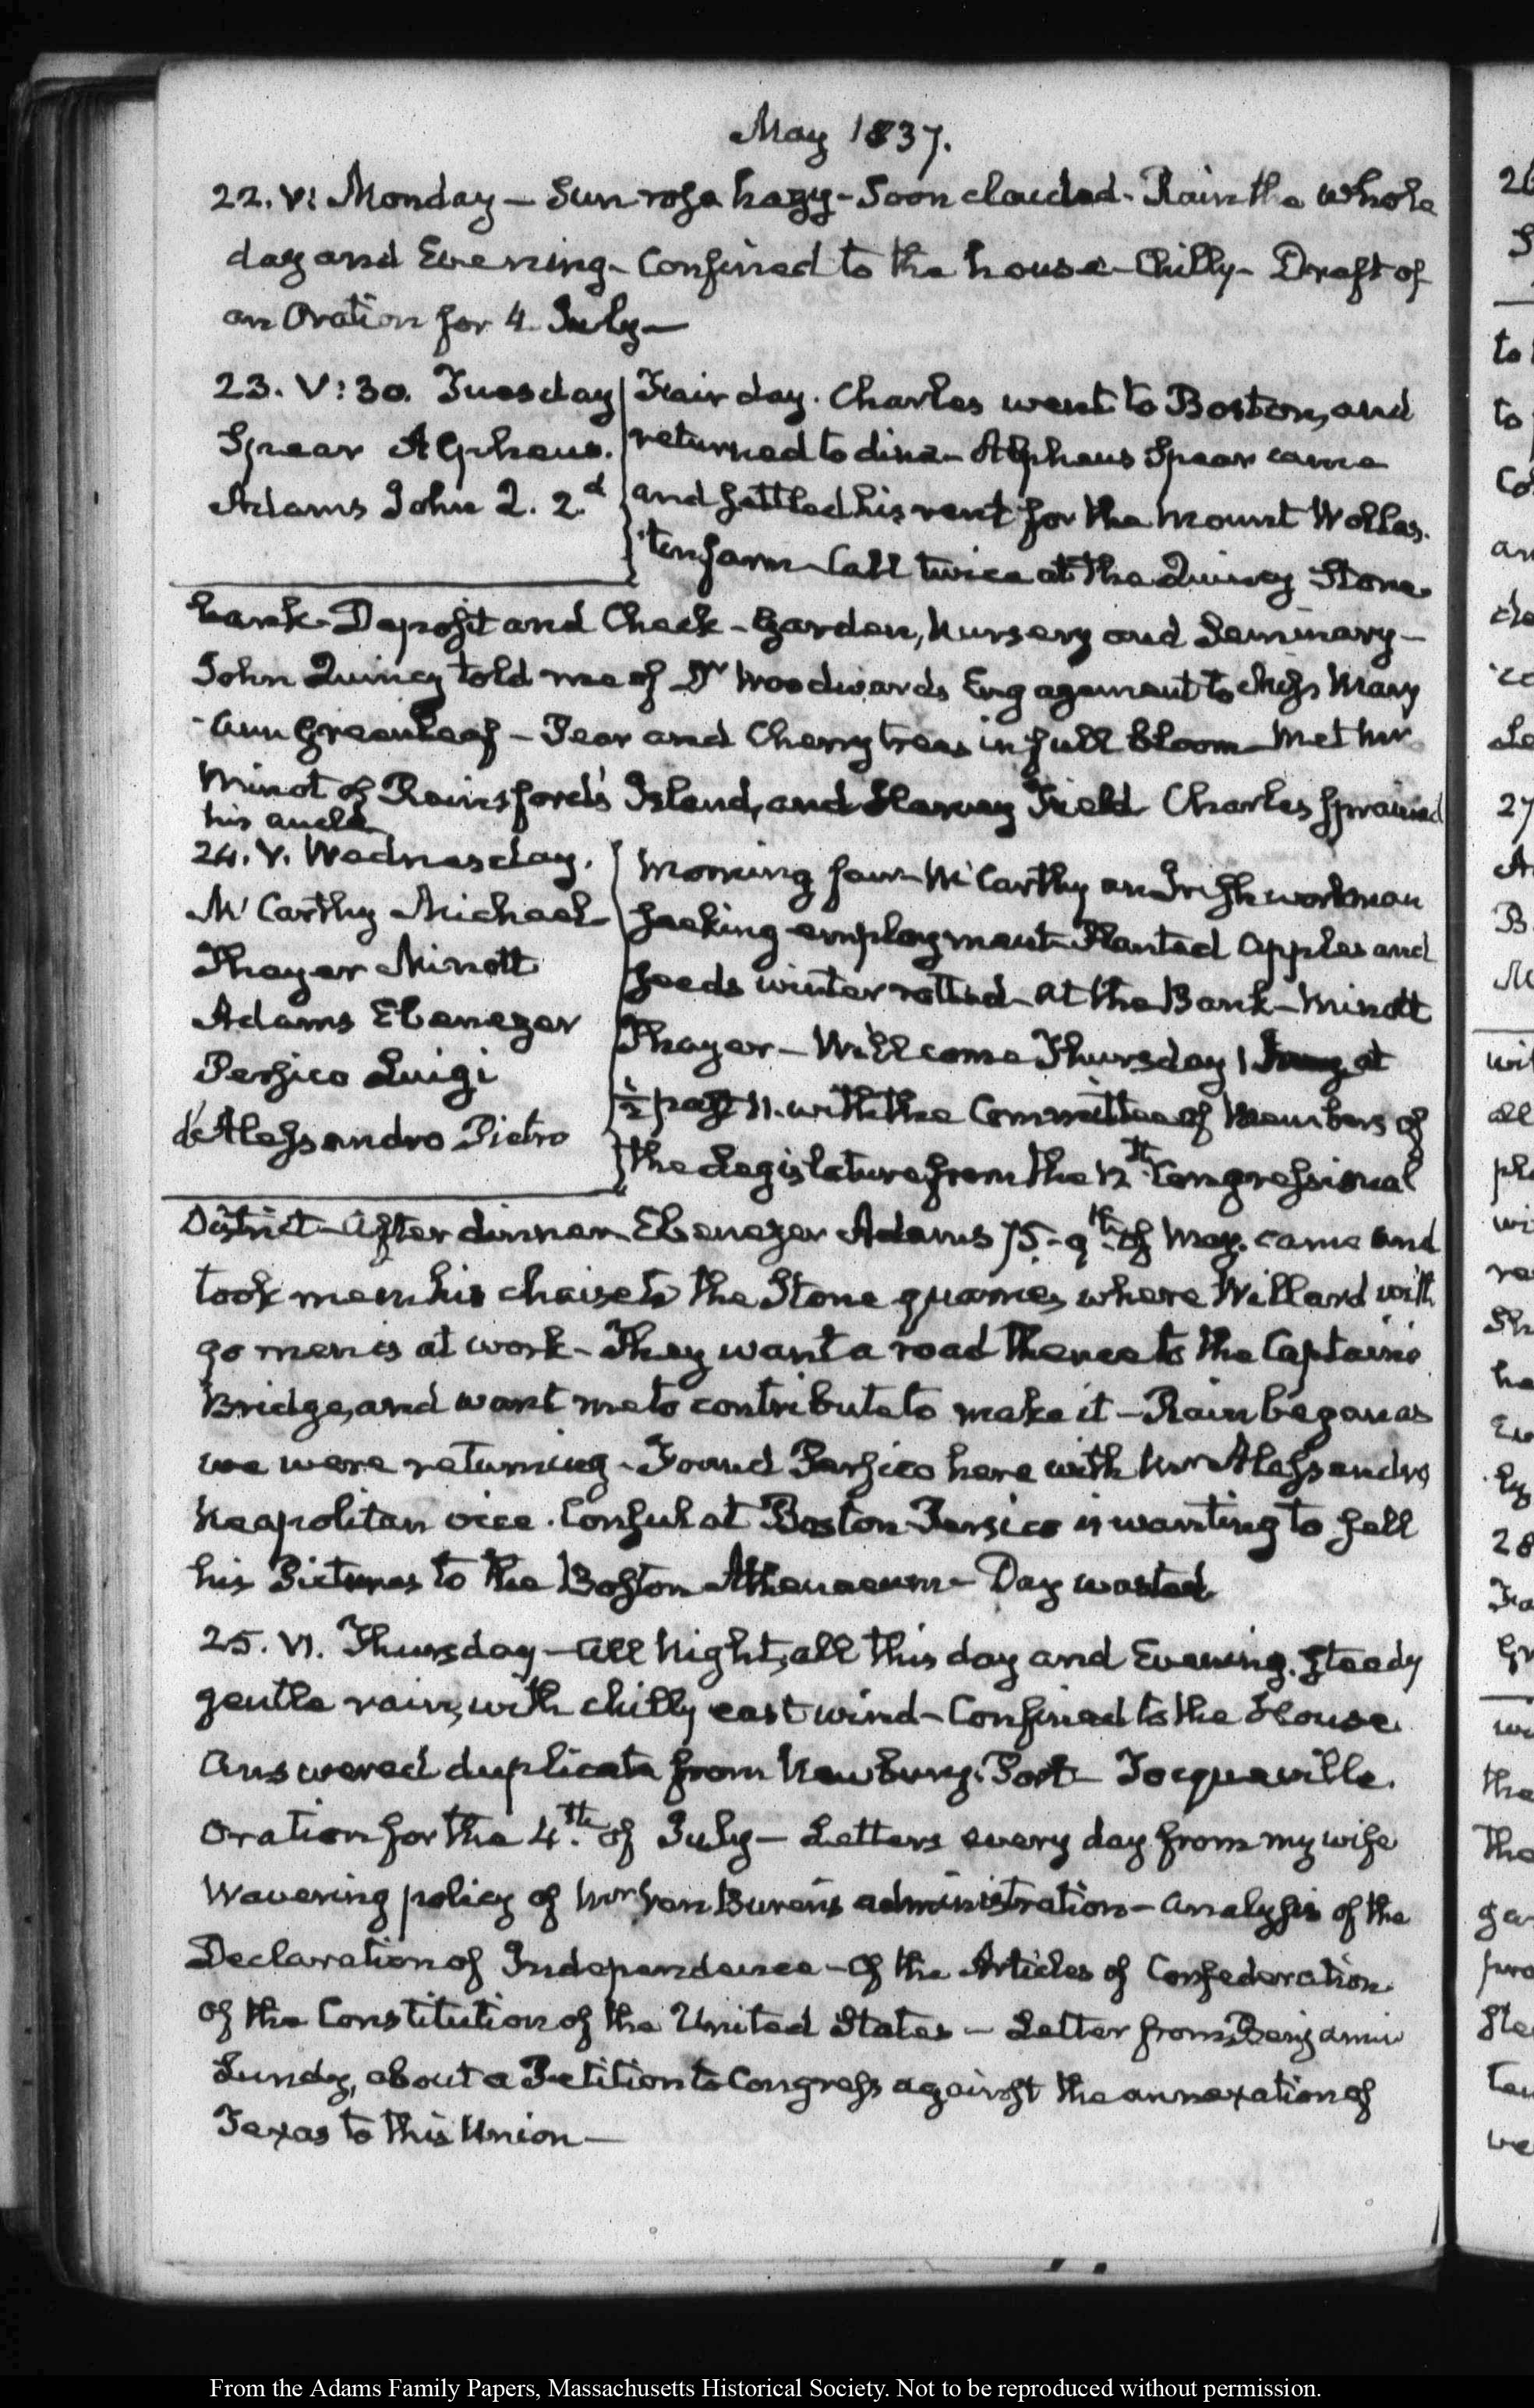 May 1837.
22. V: Monday – Sun rose hazy – Soon clouded – Rain the whole
day and Evening – Confined to the house – Chilly – Draft of
an Oration for 4. July –
23. V:30. Tuesday
Spear Alpheus.
Adams John Q. 2.d
Fair day. Charles went to Boston, and
returned to dine – Alpheus Spear came
and settled his rent for the Mount Wollas-
ton farm – Call twice at the Quincy Stone
bank – Deposit and Check – Garden, Nursery and Seminary –
John Quincy told me of Dr Woodwards Engagement to Miss Mary
Ann Greenleaf – Pear and Cherry trees in full bloom – Met Mr
Minot of Rainsford's Island, and Harvey Field Charles sprained
his ancle
24. V. Wednesday.
McCarthy Michael
Thayer Minott
Adams Ebenezer
Persico Luigi
d'Alessandro Pietro
Morning fair – McCarthy an Irish workman
seeking employment – Planted apples and
seeds winter rotted – at the Bank – Minott
Thayer – Will come Thursday 1 at
½ past 11. with the Committee of Members of
the Legislature from the 12th Congressional
District – After dinner Ebenezer Adams 75 – 9th of May. came and
took me in his chaise to the Stone quarries where Willard with
90 men is at work – They want a road thence to the Captains
Bridge, and want me to contribute to make it – Rain began as
we were returning – Found Persico here with Mr Alessandro
Neapolitan vice-Consul at Boston – Persico is wanting to sell
his Pictures to the Boston Athenaeum – Day wasted
25. VI. Thursday – All Night, all this day and Evening. steady
gentle rain, with chilly east wind – Confined to the House
Answered duplicate from Newbury-Port – Tocqueville.
Oration for the 4.th of July – Letters every day from my wife
Wavering policy of Mr Van Buren's administration – Analysis of the
Declaration of Independence – Of the Articles of Confederation
of the Constitution of the United States – Letter from Benjamin
Lundy, about a Petition to Congress against the annexation of
Texas to this Union –
From the Adams Family Papers, Massachusetts Historical Society. Not to be reproduced without permission.